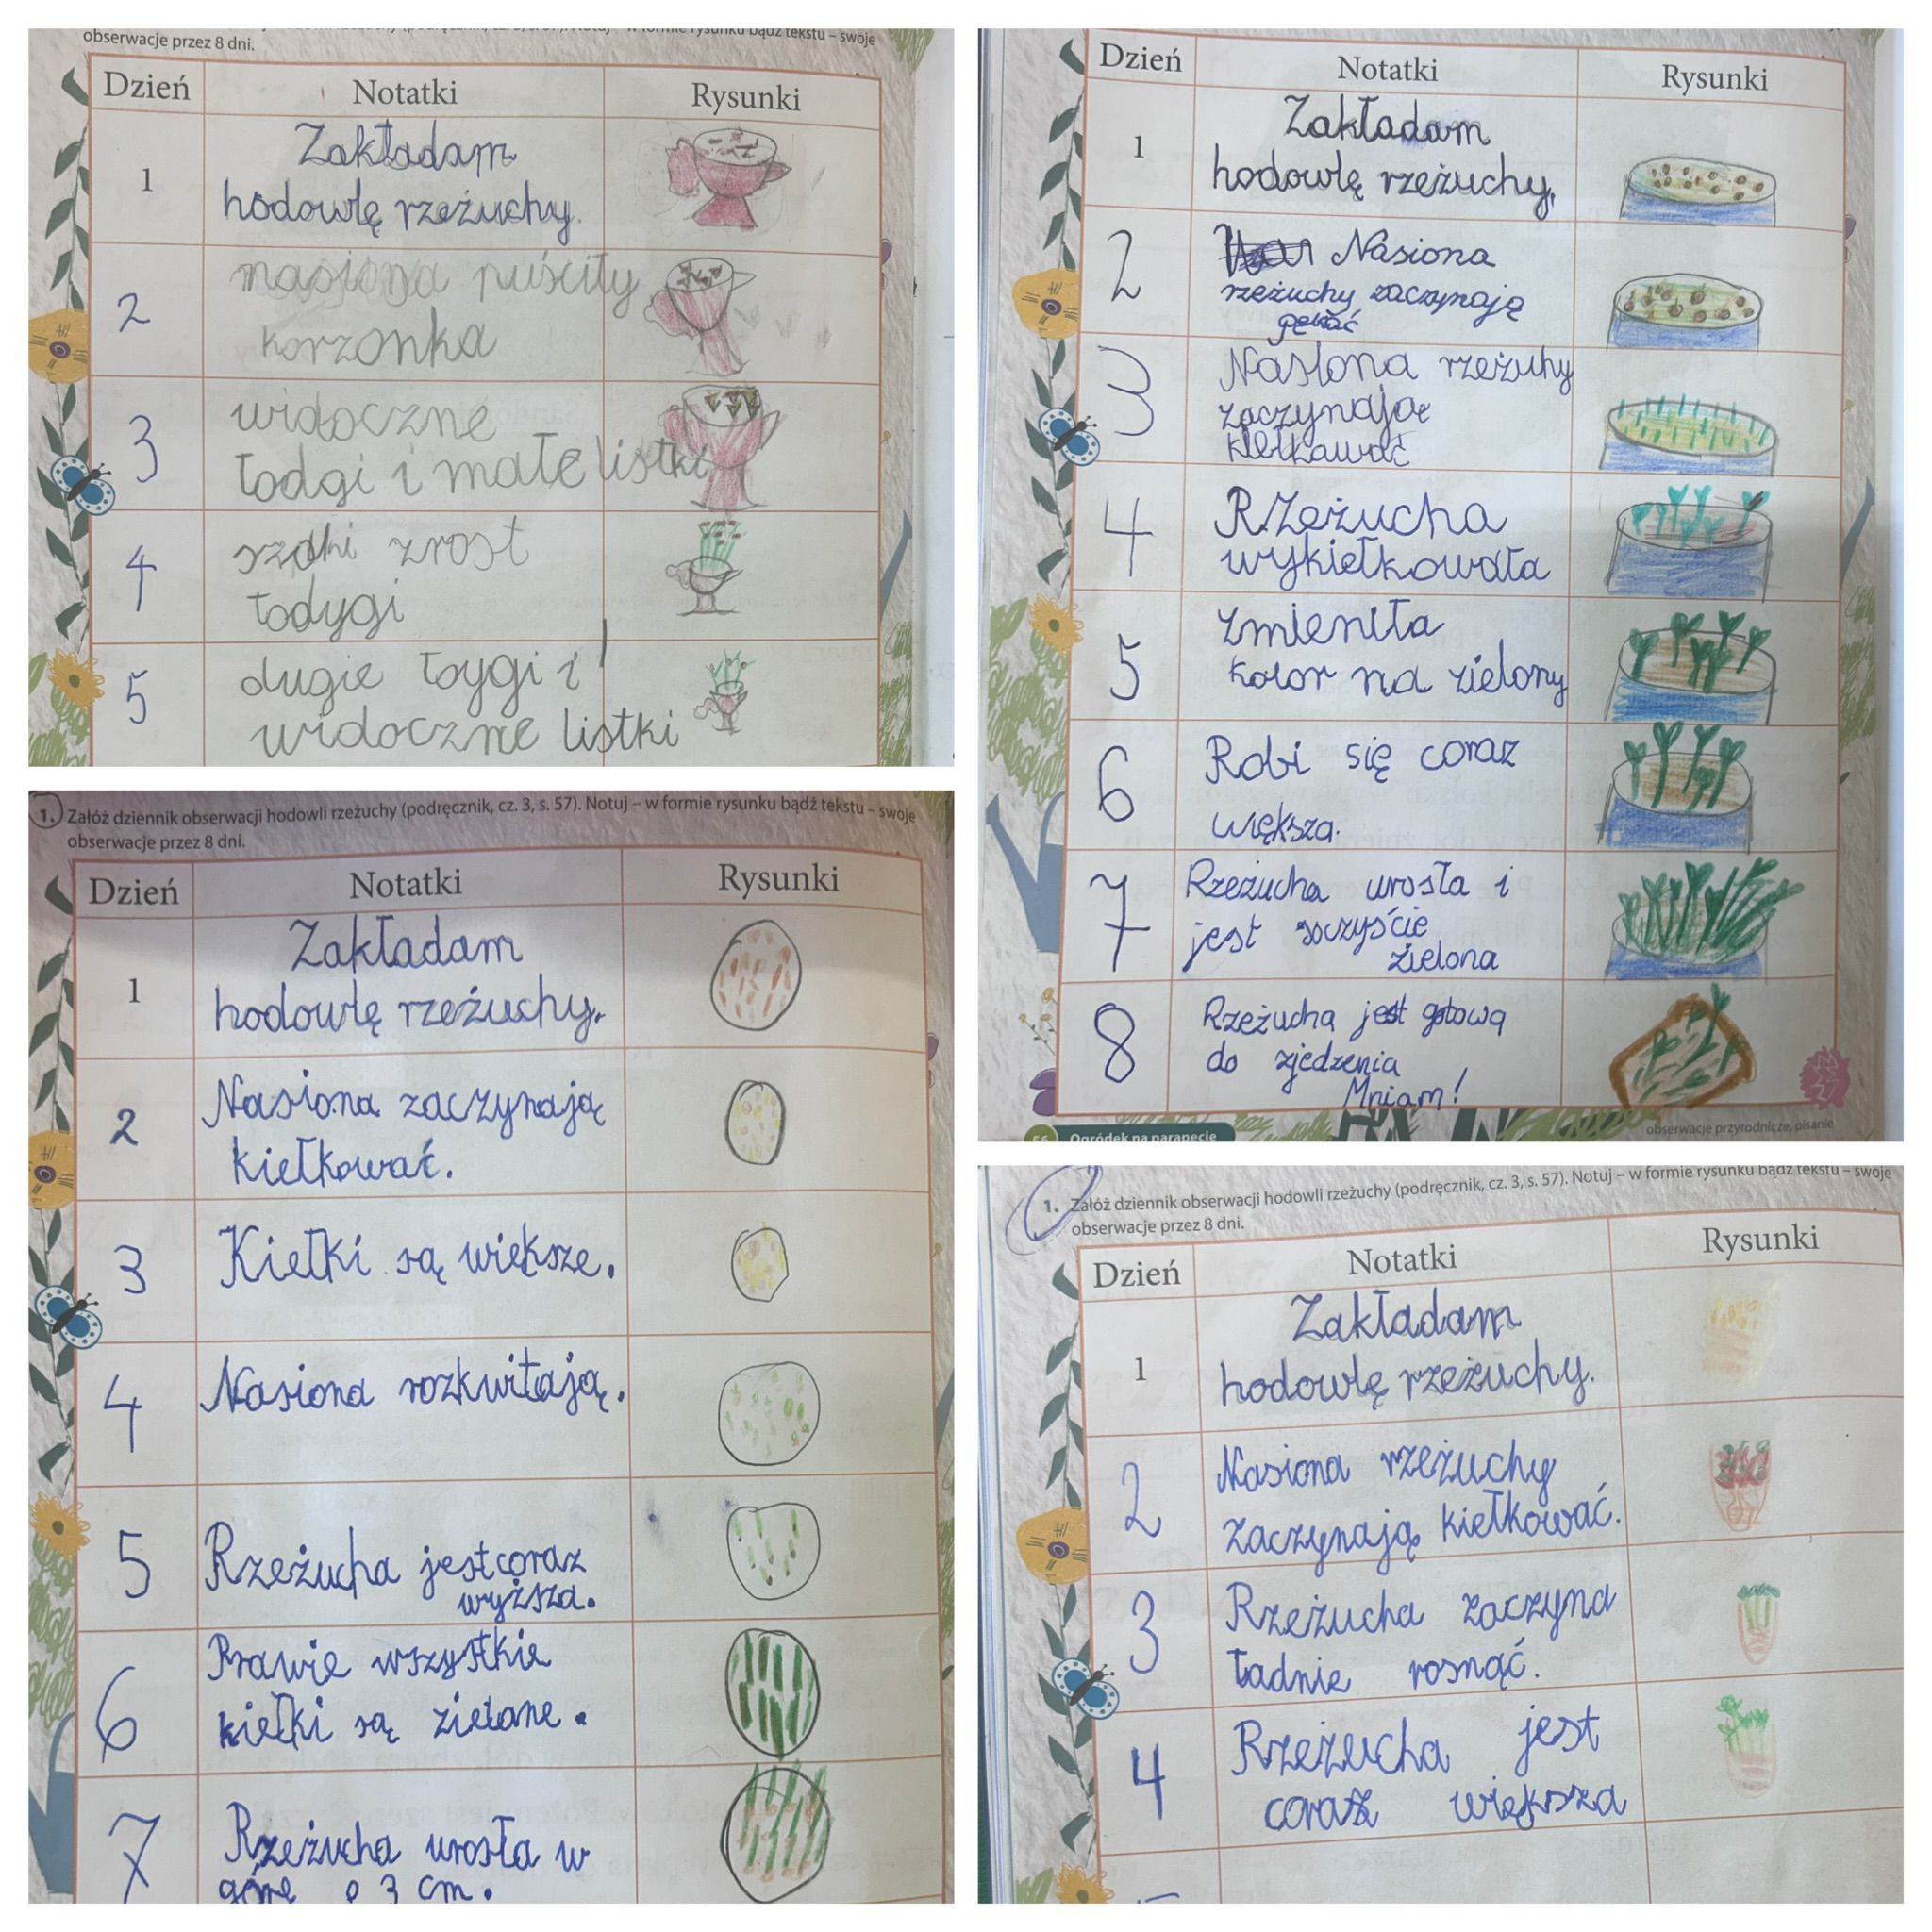 obserwacje przez 8 dni.
Dzień Notatki Rysunki
1 Zakładam
hodowlę rzeżuchy.
2 nasiona puściły
korzonka
3 widoczne
łodgi i małe listki
4 zrost
łodygi
5 dugie łoygi i
widoczne listki
1. Załóż dziennik obserwacji hodowli rzeżuchy (podręcznik, cz. 3, s. 57). Notuj – w formie rysunku bądź tekstu – swoje
obserwacje przez 8 dni.
Dzień Notatki Rysunki
1 Zakładam
hodowlę rzeżuchy.
2 Nasiona zaczynają
kiełkować.
3 Kiełki są większe.
4 Nasiona rozkwitają.
5 Rzeżucha jest coraz
wyższa.
6 Prawie wszystkie
kiełki są zielone.
7 Rzeżucha urosła w
górę o 3 cm.
Dzień Notatki Rysunki
1 Zakładam
hodowlę rzeżuchy.
2 Nasiona
rzeżuchy zaczynają
pękać
3 Nasiona rzeżuhy
zaczynają
kiełkawać
4 RZeżucha
wykiełkowała
5 zmieniła
kolor na zielony
6 Robi się coraz
większa.
7 Rzeżucha urosła i
jest soczyście
zielona
8 Rzeżucha jest gotowa
do zjedzenia
Mniam!
56 Ogródek na parapecie
obserwacje przyrodnicze, pisanie
1. Załóż dziennik obserwacji hodowli rzeżuchy (podręcznik, cz. 3, s. 57). Notuj – w formie rysunku bądź tekstu – swoje
obserwacje przez 8 dni.
Dzień Notatki Rysunki
1 Zakładam
hodowlę rzeżuchy.
2 Nasiona rzeżuchy
zaczynają kiełkować.
3 Rzeżucha zaczyna
ładnie rosnąć.
4 Rzeżucha jest
coraz większa